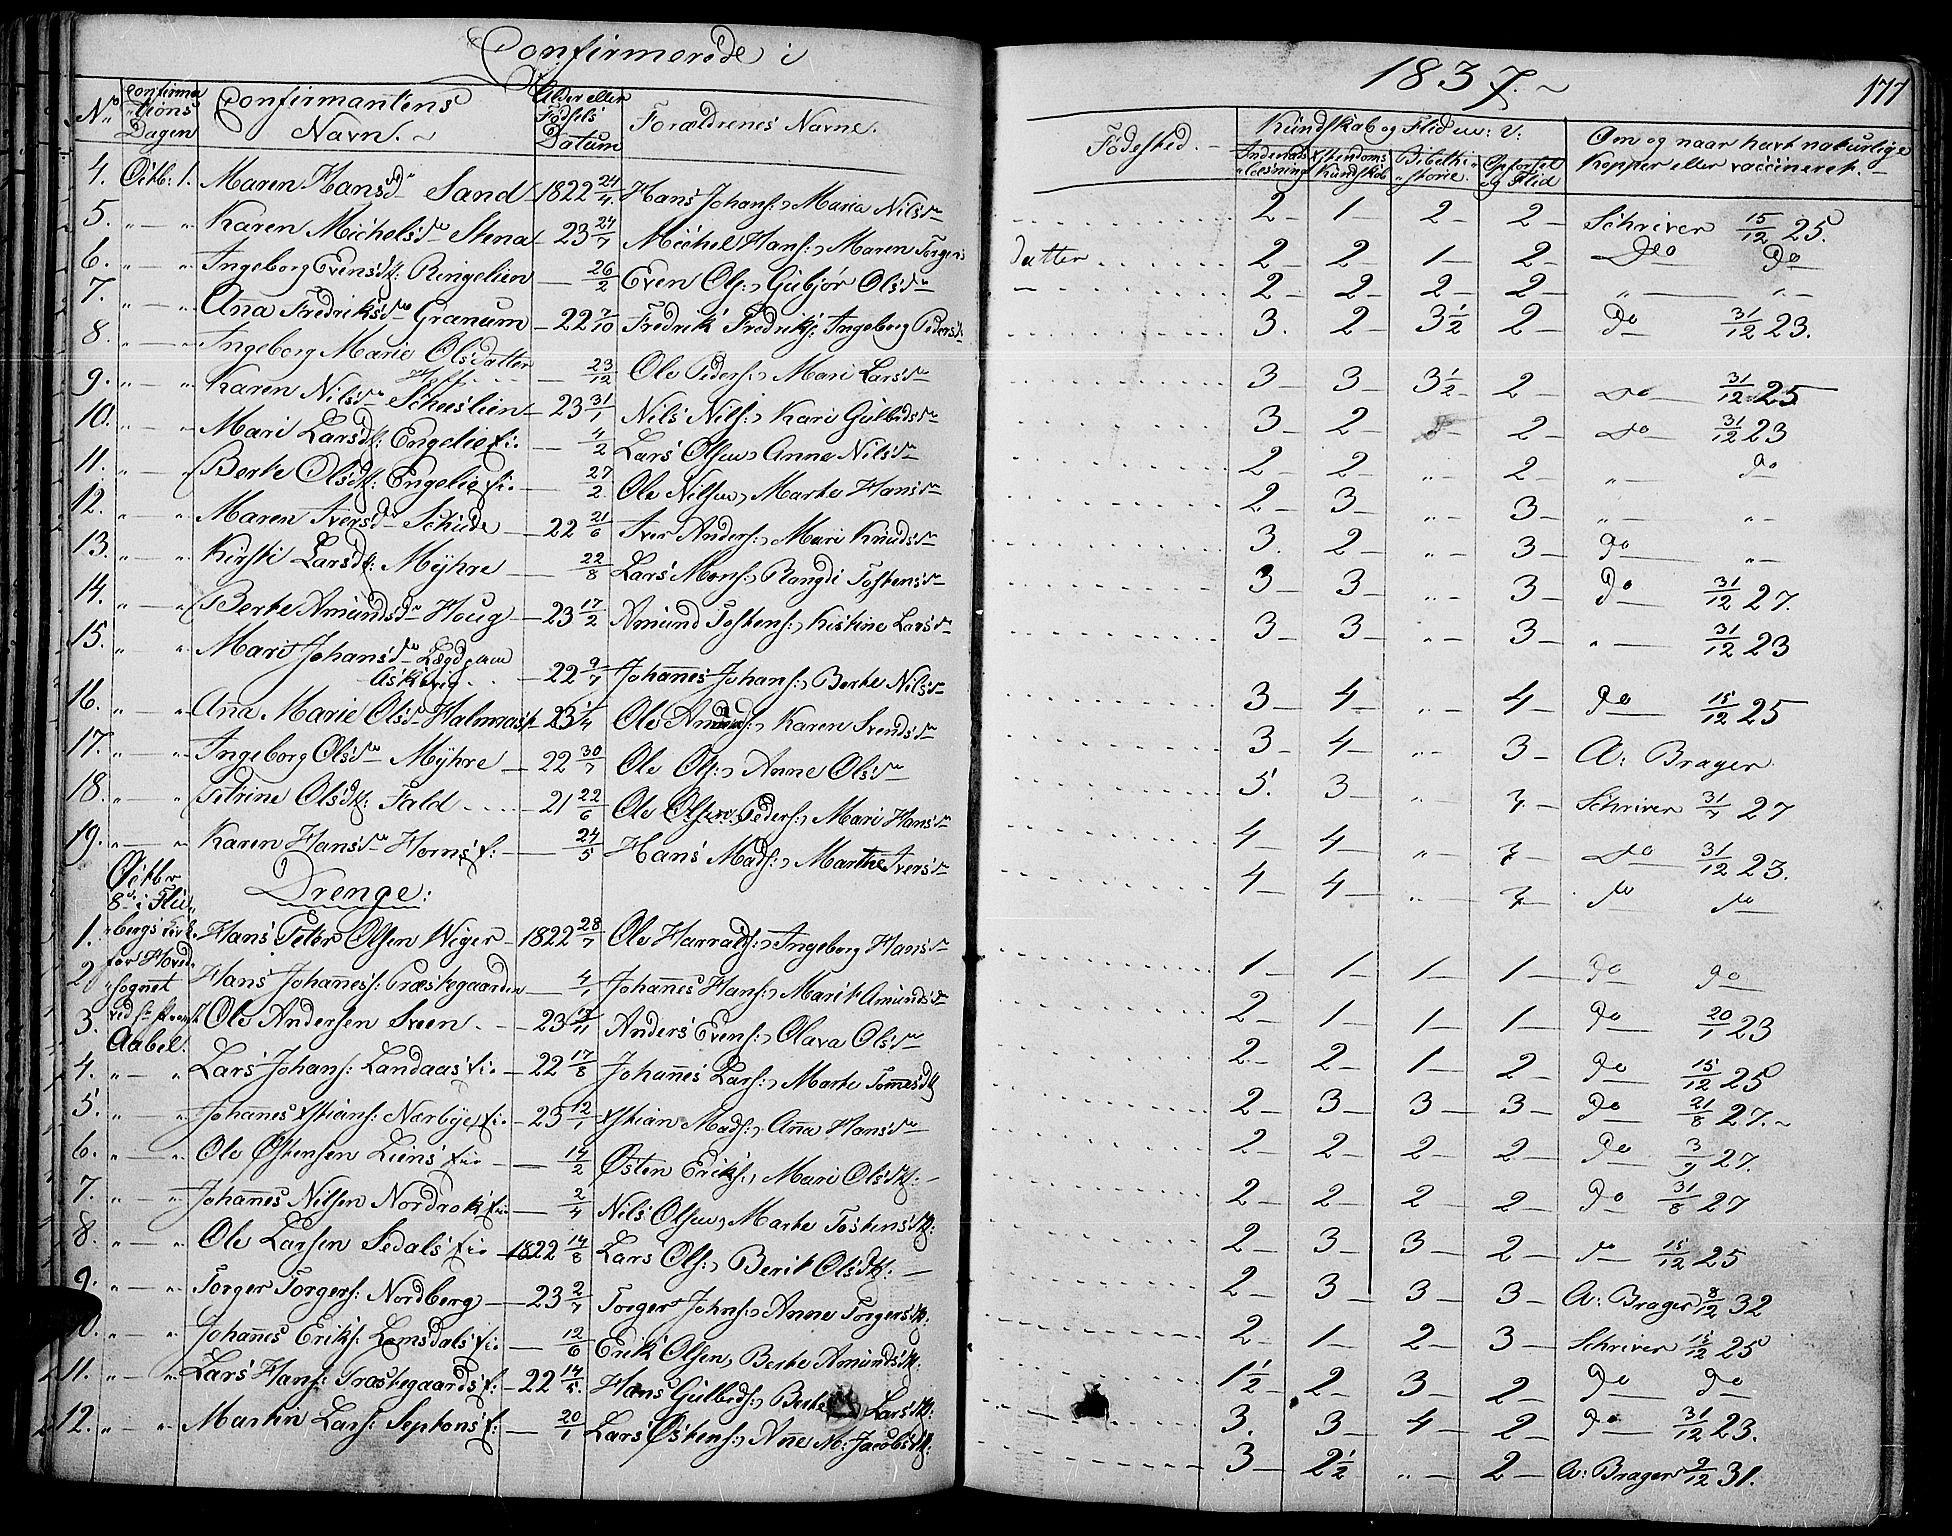 Confirmerede i
1837.~
177
No
Confirma
tions
Dagen
Confirmantens
Navn. ~
Alder eller
Födsels
Datum
Forældrenes Navne.
Födested. -
Kundskab og Flid
Indenads
læsning
Xstendoms
Kundskab
Bibelhi
storie.
Opförsel
og Flid
Om og naar havt naturlige
Kopper eller vaccineret. -
4. Octb: 1. Maren Hansd Sand 1822 24/4 Hans Johans: Maria Nilsd 2 - 1 - 2 - 2 - Schriver 15/12 25.
5. " - " Karen Michelsd Stena - 23 24/7 Michel Hans: Maren Torgers datter 2 - 2 - 1 - 2 - Do do
6. " - " Ingeborg Evensd: Ringelien - 26/2 Even Ols: Gubjör Olsd 2 - 2 - 2 - 2 - " "
7. " - " Anna Fredriksd Granum - 22 7/10 Fredrik Fredriks: Ingeborg Pedersd: 3. 2 - 3 1/2 2 - do 31/12 23.
8. " - " Ingeborg Marie Olsdatter
- 23/12 Ole Peders: Mari Larsd 3 - 3 - 3 1/2 - 2 - Do 31/12 25
9. " - " Karen Nilsd Scheslien - 23 31/1 Nils Nils: Kari Gulbdsd 3 - 2 - 2 - Do 31/12 23
10. " - " Mari Larsd: Engelie - 4/2 Lars Olsen Anne Nilsd 2 - 2 - " 2 - " do
11. " - " Berte Olsd: Engelie - 27/2 Ole Nilsen Marte Hansd 2 - 3 - " 3 - " "
12. " - " Maren Iversd Schude - 22 21/6 Iver Anders: Mari Knudsd 3. 2 - " 3 - do "
13. " - " Kirsti Larsd: Mÿhre - 22/8 Lars Mons: Rangdi Tostensd 3 - 3 - " 3 - do 31/12 27.
14. " - " Berte Amundsd Houg - 23 17/2 Amund Tostens: Kistine Larsd 3 - 3 - " 3 - " 31/12 23
15. " - " Marit Johansd
- 22 9/7 Johannes Johans: Berte Nilsd 3 - 4 - " 4 - do 15/12 25
16. " - " Anna Marie Olsd - 23 1/4 Ole Karen Svendsd 3 - 4 - " 3 - A: Brager
17. " - " Ingeborg Olsd Mÿhre - 22 30/7 Ole Ols: Anne Olsd 5. 3 - " Schriver 31/7 27
18. " - " Petrine Olsd: Fald - 21 22/6 Ole Peders: Mari Hansd 4 - 4 - " Do 31/12 23.
19. " - " Karen Hansd Horns - 24/5 Hans Mads: Marthe Iversd 4 - 4 - " do do
Octbr
8de i Flu
bergs Kirk.
for Hoved
sognet
Aabel.
Drenge:
1. Hans Peter Olsen Wiger - 1822 28/7 Ole Harralds: Ingeborg Hansd 1 - 1 - 1 - 1 - do do
2. Hans Johanness: Præstegaarden - 4/1 Johannes Hans: Marit Amundsd 2 - 1 - 1 - 1 - do 20/1 23
3. Ole Andersen Sveen - 23 Anders Evens: Olava Olsd 2 - 2 - 1 - 2 - do 15/12 25
4. " - " Lars Johans: Landaas - 22 17/8 Johannes Lars: Marte Tomesd 2 - 3 - 3 - 3 - do 21/8 27.~
5. " - " Johanes Xstians: Nærbye - 23 12/1 Xstian Mads: Anna Hansd 2 - 2 - 2 - 2 - do 3/9 27.
6. " - " Ole Östensen Liens - 14/2 Östen Eriks: Mari Olsd: 2 - 2 - 2 - 2 - do 31/8 27
7. " - " Johannes Nilsen Nordrok - 2/4 Nils Olsen Marte Tostensd: 2 - 3 - 3 - 2 - do 15/12 25
8. " - " Ole Larsen Sedals - 1822 14/8 Lars Ols: Berit Olsd: 2 - 3 - 3 - 3 - A: Brager 8/12 32
9. " - " Torger Torgers: Nordberg - 23 2/7 Torger Johns: Anne Torgersd: 2 - 1 - 2 - 3 - Schriver 15/12 25
10. " - " Johannes Eriks: Lomsdals - 12/6 Erik Olsen Berte Amundsd: 1 1/2 - 2 - 3 - 2 - do do
11. " - " Lars Hans: Præstegaards - 22 14/5. Hans Gulbds: Berte Larsd: 3. 3 - 4 - 2 - do 31/12 23.
12. " - " Martin Lars: Septons - 20/1 Lars Östens: Anne M: Jacobsd: 3 - 2 1/2 " 2 - A: Brager 9/12 31.